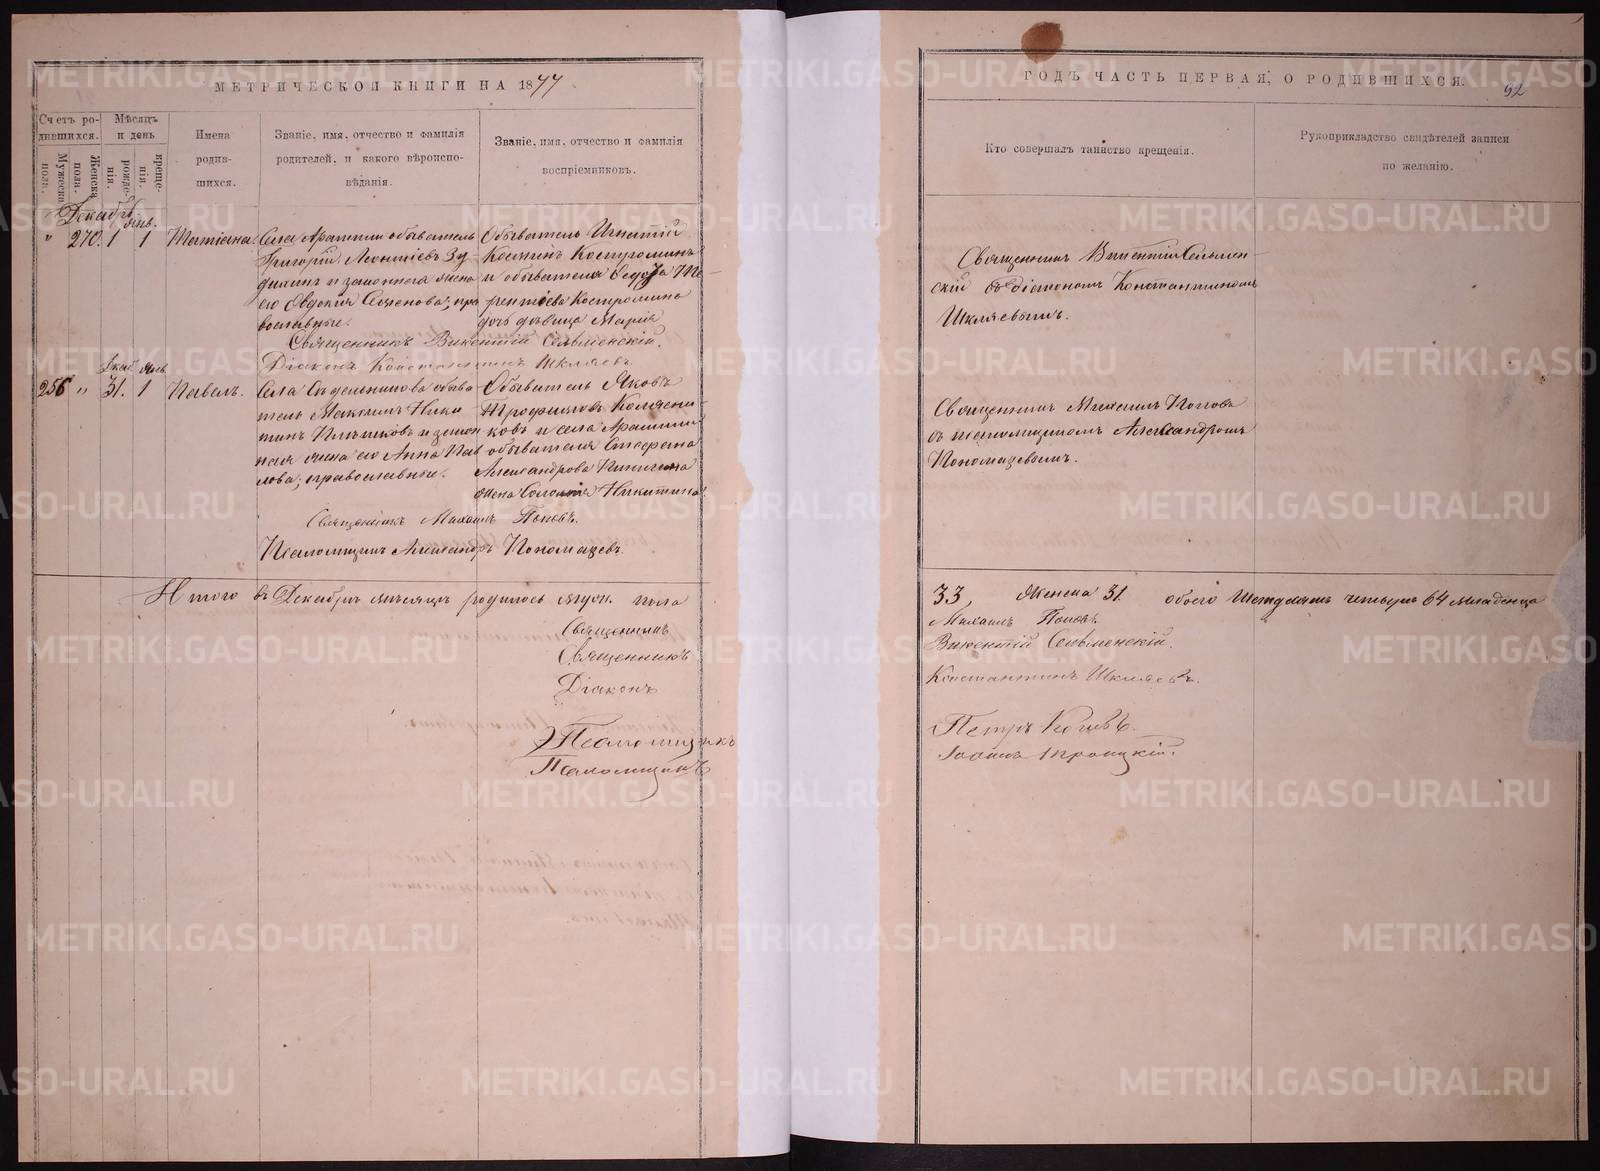 МЕТРИЧЕСКОЙ КНИГИ НА 1877
Счетъ ро-
дившихся.
Мужеска
пола.
Женска
пола.
Мѣсяцъ
и день
рожде-
нія.
креще-
нія.
Имена
родив-
шихся.
Званіе, имя, отчество и фамилія
родителей, и какого вѣроиспо-
вѣданія.
Званіе, имя, отчество и фамилія
воспріемниковъ.
" 270. 1 1 Татіана.
Села Арамили обыватель
Григорій Леонтіевъ
и законная жена
его Евдокія Семенова; пра
вославные.
Обыватель Игнатій
Косминъ Костроминъ
и обывателя
Костромина
дочь дѣвица Марія
Священникъ Викентій Словменскій.
Діаконъ Константинъ Шкляевъ.
Декаб. Янв.
256 " 31. 1 Павелъ.
Села обыва
тель Максимъ Ники
тинъ и закон
ная жена его Анна Пав
лова; православные.
Обыватель Яковъ
Трофимовъ
ковъ и села Арамили
обывателя Стефана
Александрова
жена Никитина.
Священникъ Михаилъ Поповъ.
Псаломщикъ Александръ Пономаревъ.
Итого въ Декабрѣ мѣсяцѣ родилось муж. пола
Священникъ
Священникъ
Діаконъ
Псаломщикъ
Псаломщикъ
ГОДЪ ЧАСТЬ ПЕРВАЯ, О РОДИВШИХСЯ.
92
Кто совершалъ таинство крещенія.
Рукоприкладство свидѣтелей записи
по желанію.
Священникъ Викентій Словмен-
скій съ діакономъ Константиномъ
Шкляевымъ.
Священникъ Михаилъ Поповъ
съ псаломщикомъ Александромъ
Пономаревымъ.
33, Женска 31. обоего Шестдесятъ четыре 64 младенца
Михаилъ Поповъ.
Викентій Словменскій.
Константинъ Шкляевъ.
Петръ
Іоаннъ Троицкій.
METRIKI.GASO-URAL.RU